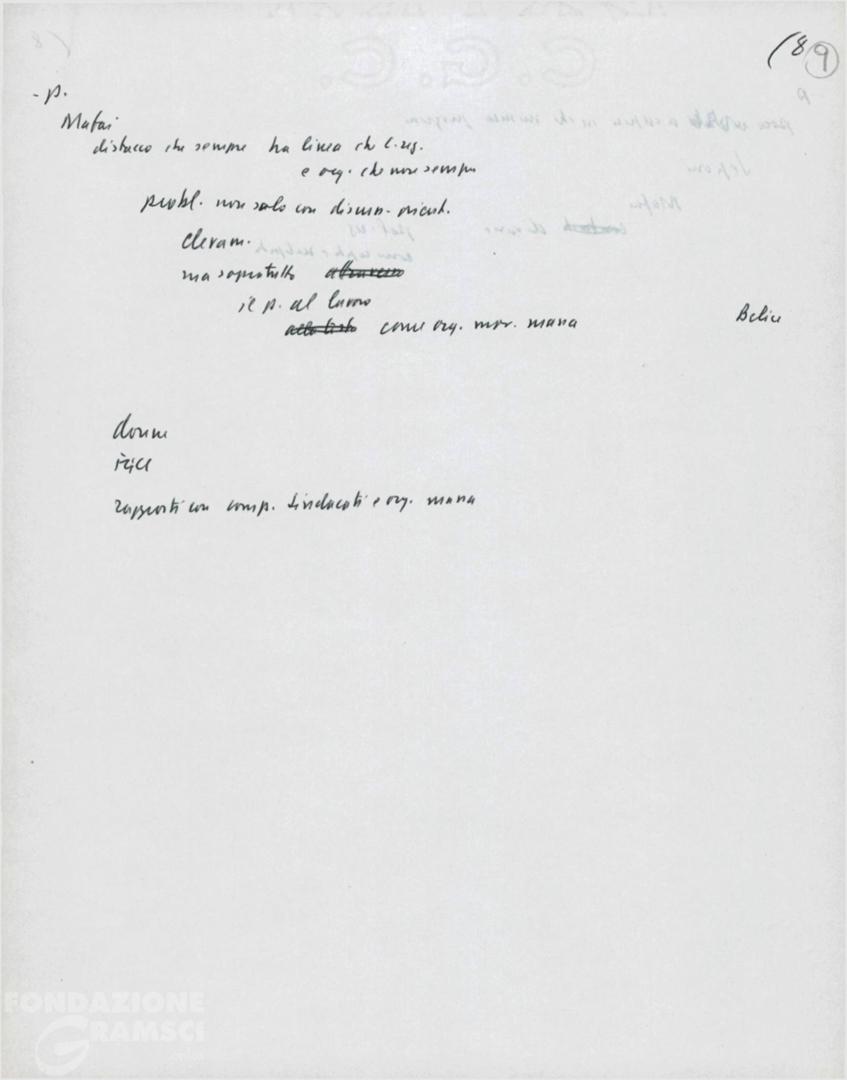 (8 9
- p.
Mafai
distacco che sempre tra linea che c. reg.
e org. che non sempre
probl. non solo con discuss. orient.
elevam.
ma sopratutto
il p. al lavoro
come org. mov. massa Belice
donne
FGCI
rapporti con comp. sindacati e org. massa
FONDAZIONE
GRAMSCI